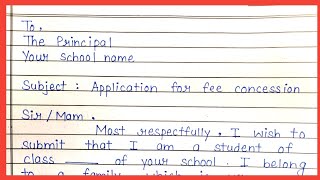 To,
The Principal
Your school name
Subject : Application for fee concession
Sir/Mam.
Most respectfully. I wish to
submit that I am a student of
class ____ of your school. I belong
to a family which is